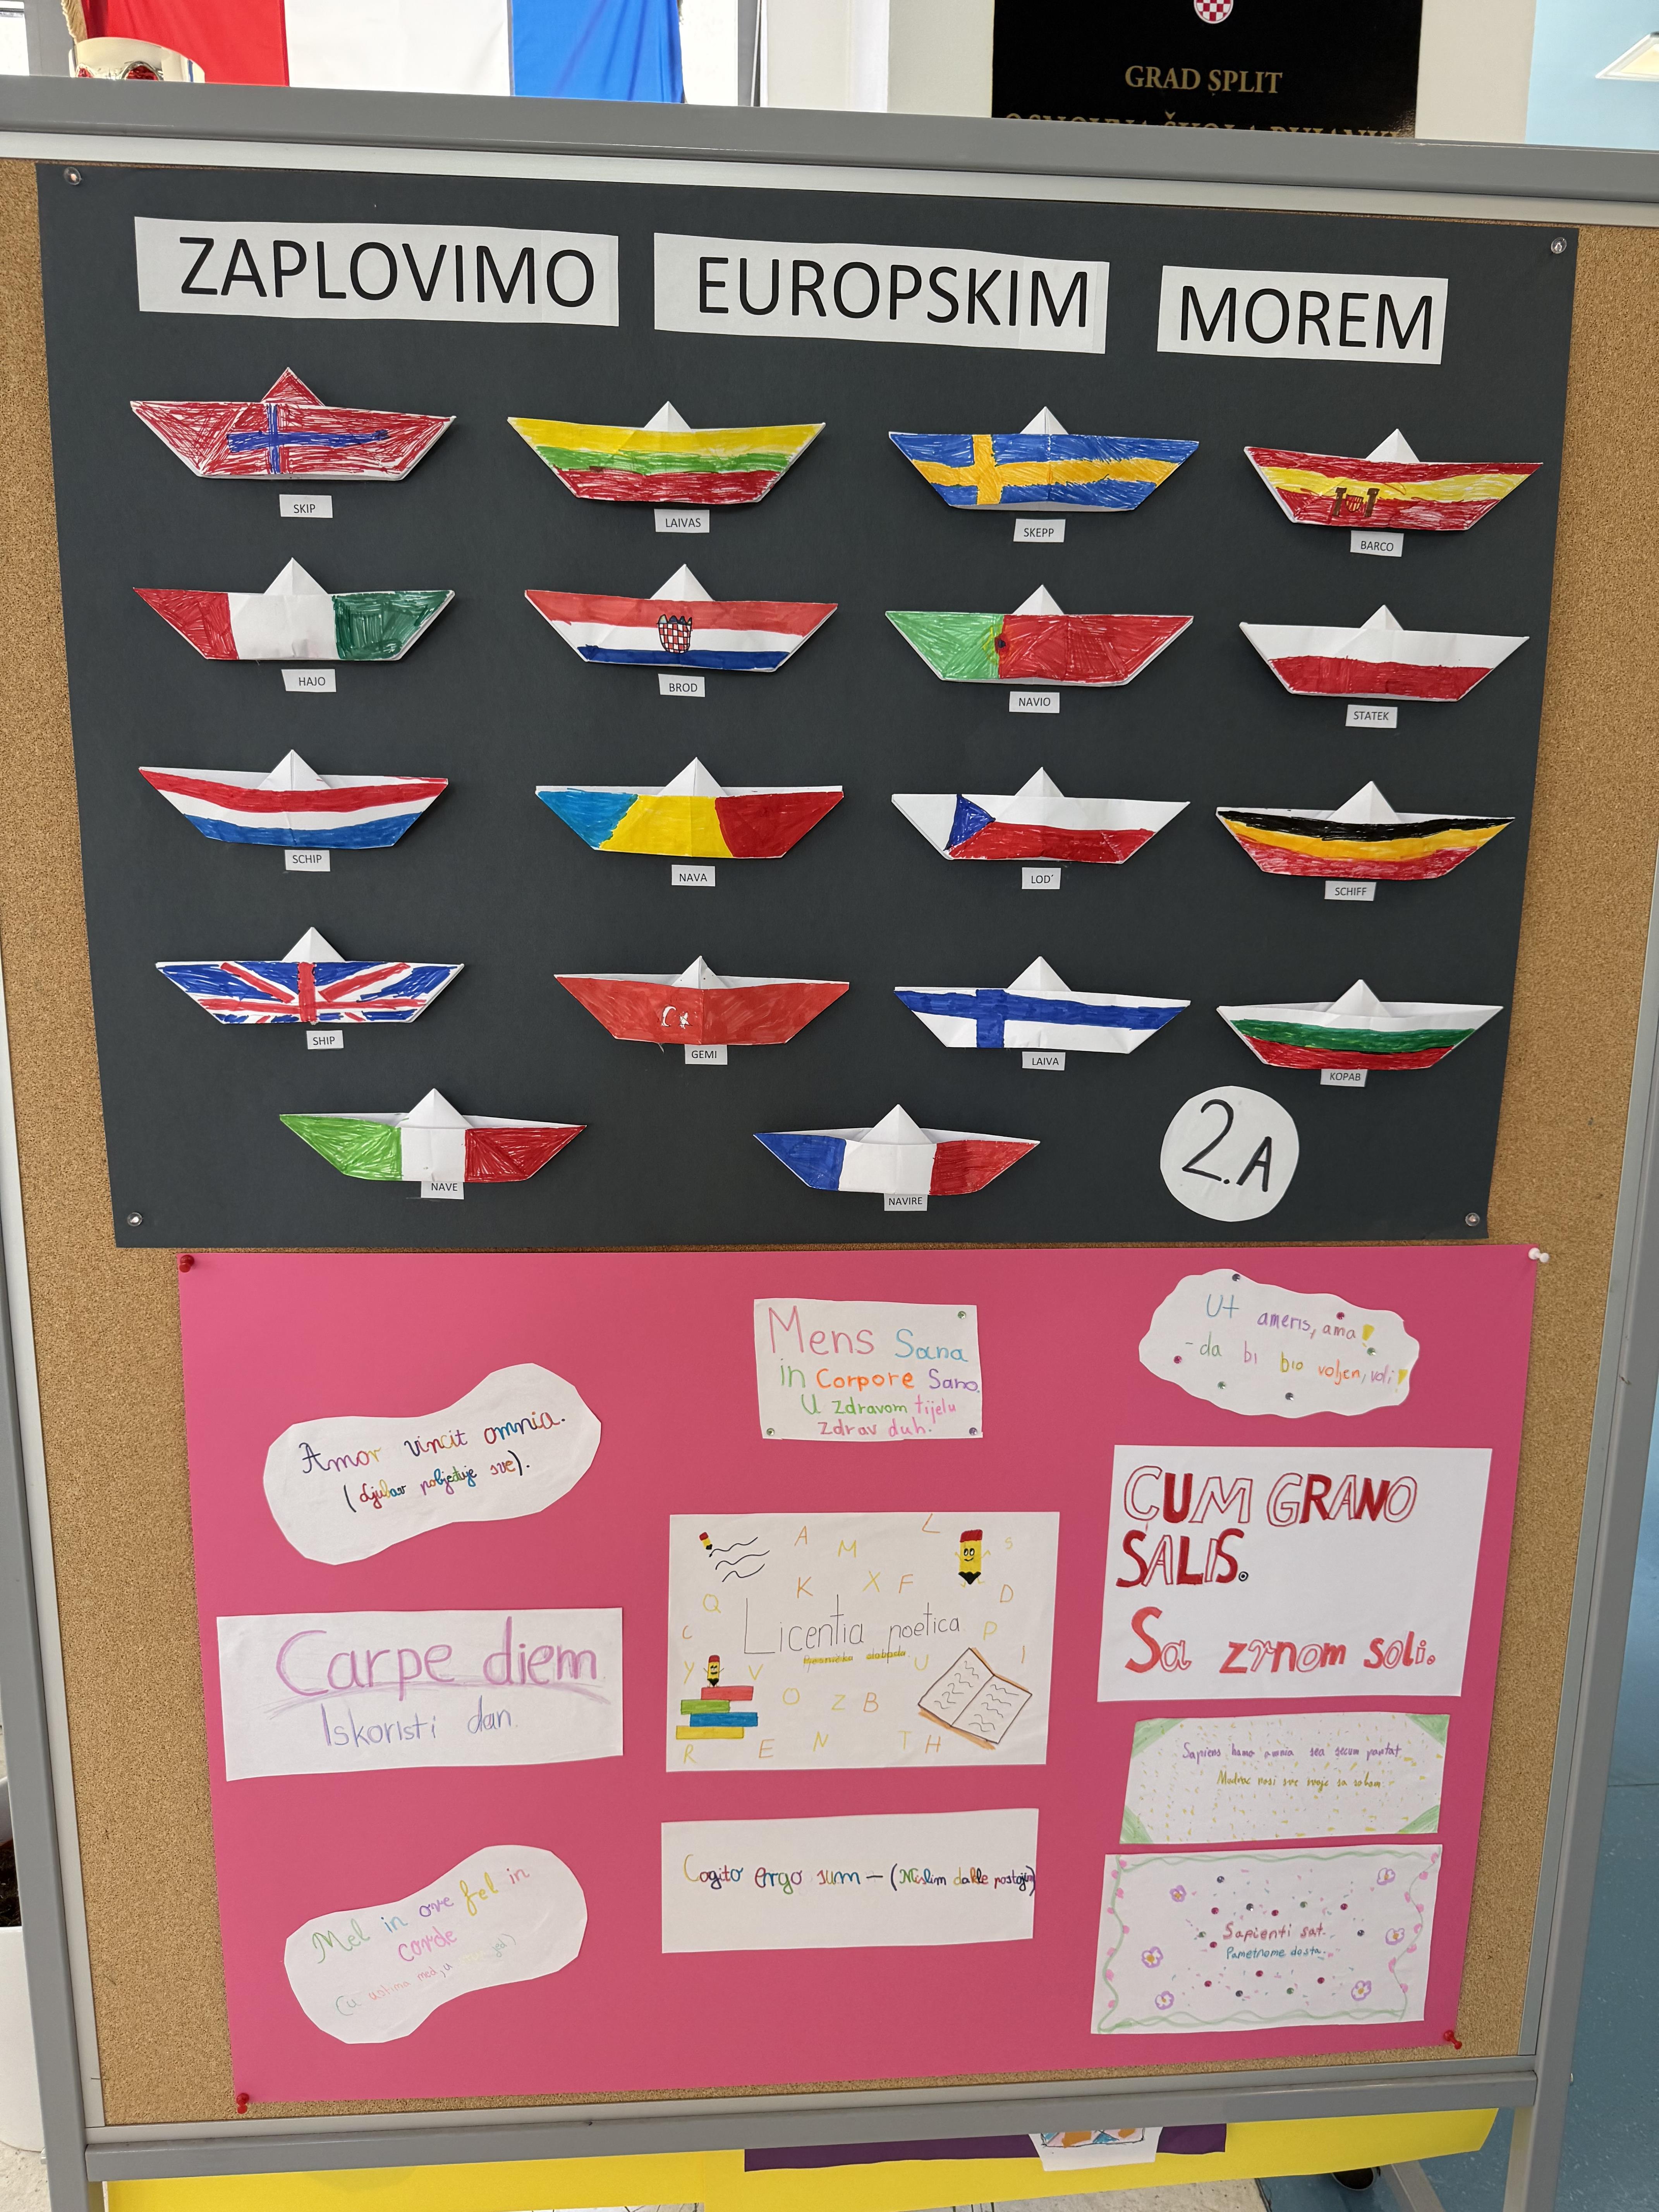 GRAD SPLIT
OSNOVNA ŠKOLA
ZAPLOVIMO EUROPSKIM MOREM
SKIP
LAIVAS
SKEPP
BARCO
HAJO
BROD
NAVIO
STATEK
SCHIP
NAVA
LOD'
SCHIFF
SHIP
GEMI
LAIVA
KOPAB
NAVE
NAVIRE
2.A
Amor vincit omnia.
(Ljubav pobjeđuje sve).
Mens Sana
in Corpore Sano.
U zdravom tijelu
zdrav duh.
Ut ameris, ama!
-da bi bio voljen, voli!
CUM GRANO
SALIS.
Sa zrnom soli.
Carpe diem
Iskoristi dan.
A M L S
K X F D
Q
Licentia poetica
Pjesnička sloboda
C P
Y V U I
O Z B
R E N T H
Sapiens homo omnia sea secum portat
Mudrac nosi sve svoje sa sobom.
Mel in ore fel in
corde
(u ustima med, u
Cogito ergo sum – (Mislim dakle postojim)
Sapienti sat.
Pametnome dosta.